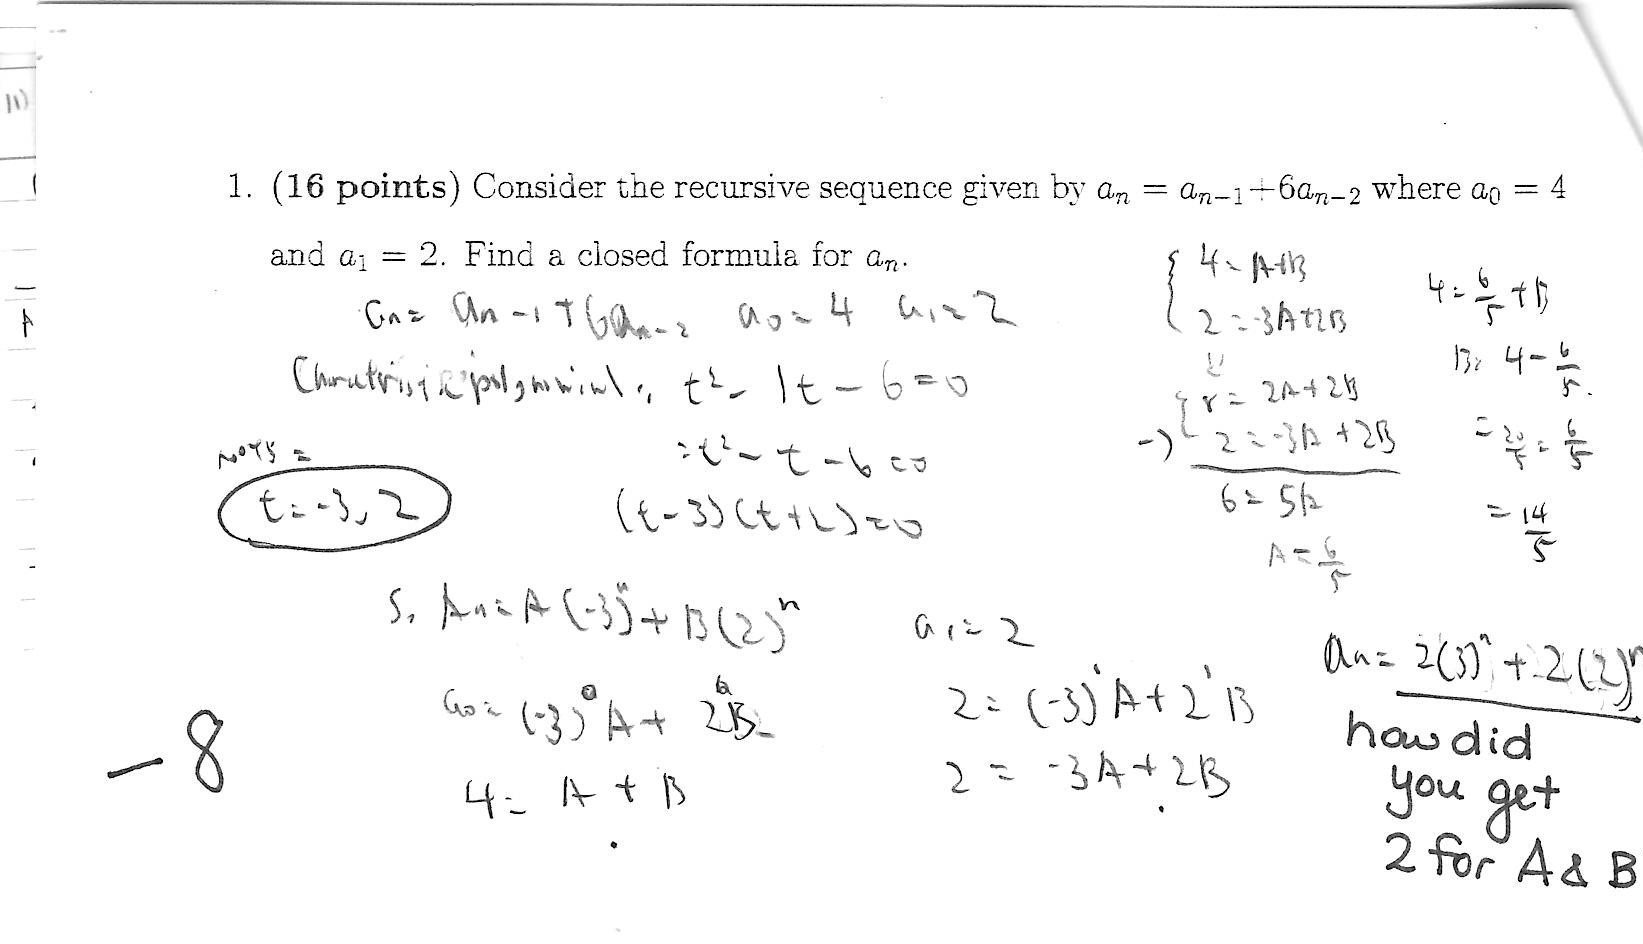 1. (16 points) Consider the recursive sequence given by aₙ = aₙ₋₁+6aₙ₋₂ where a₀ = 4
and a₁ = 2. Find a closed formula for aₙ.
aₙ = aₙ₋₁ + 6aₙ₋₂ a₀ = 4 a₁ = 2
t² - 1t - 6 = 0
= t² - t - 6 = 0
(t-3)(t+2) = 0
t = -3, 2
Aₙ = A(-3)ⁿ + B(2)ⁿ
a₀ = (-3)⁰A + 2⁰B
4 = A + B
a₁ = 2
2 = (-3)¹A + 2¹B
2 = -3A + 2B
4 = A+B
2 = -3A+2B
8 = 2A+2B
-) 2 = -3A+2B
6 = 5A
A = 6/5
4 = 6/5 + B
B = 4 - 6/5.
= 20/5 - 6/5
= 14/5
aₙ = 2(3)ⁿ + 2(2)ⁿ
how did
you get
2 for A & B
-8
11)